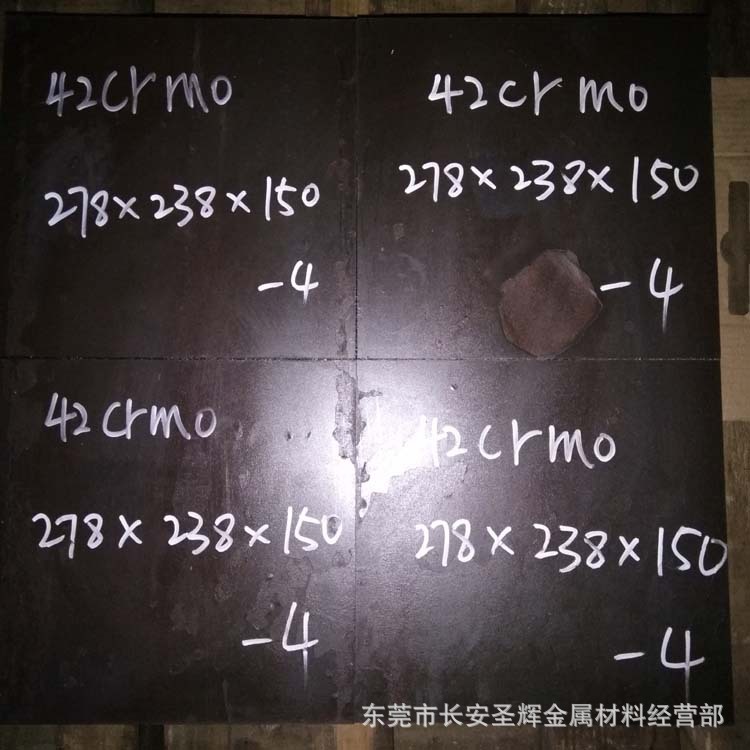 42crmo
278×238×150
-4
42crmo
278×238×150
-4
42crmo
278×238×150
-4
42crmo
278×238×150
-4
东莞市长安圣辉金属材料经营部